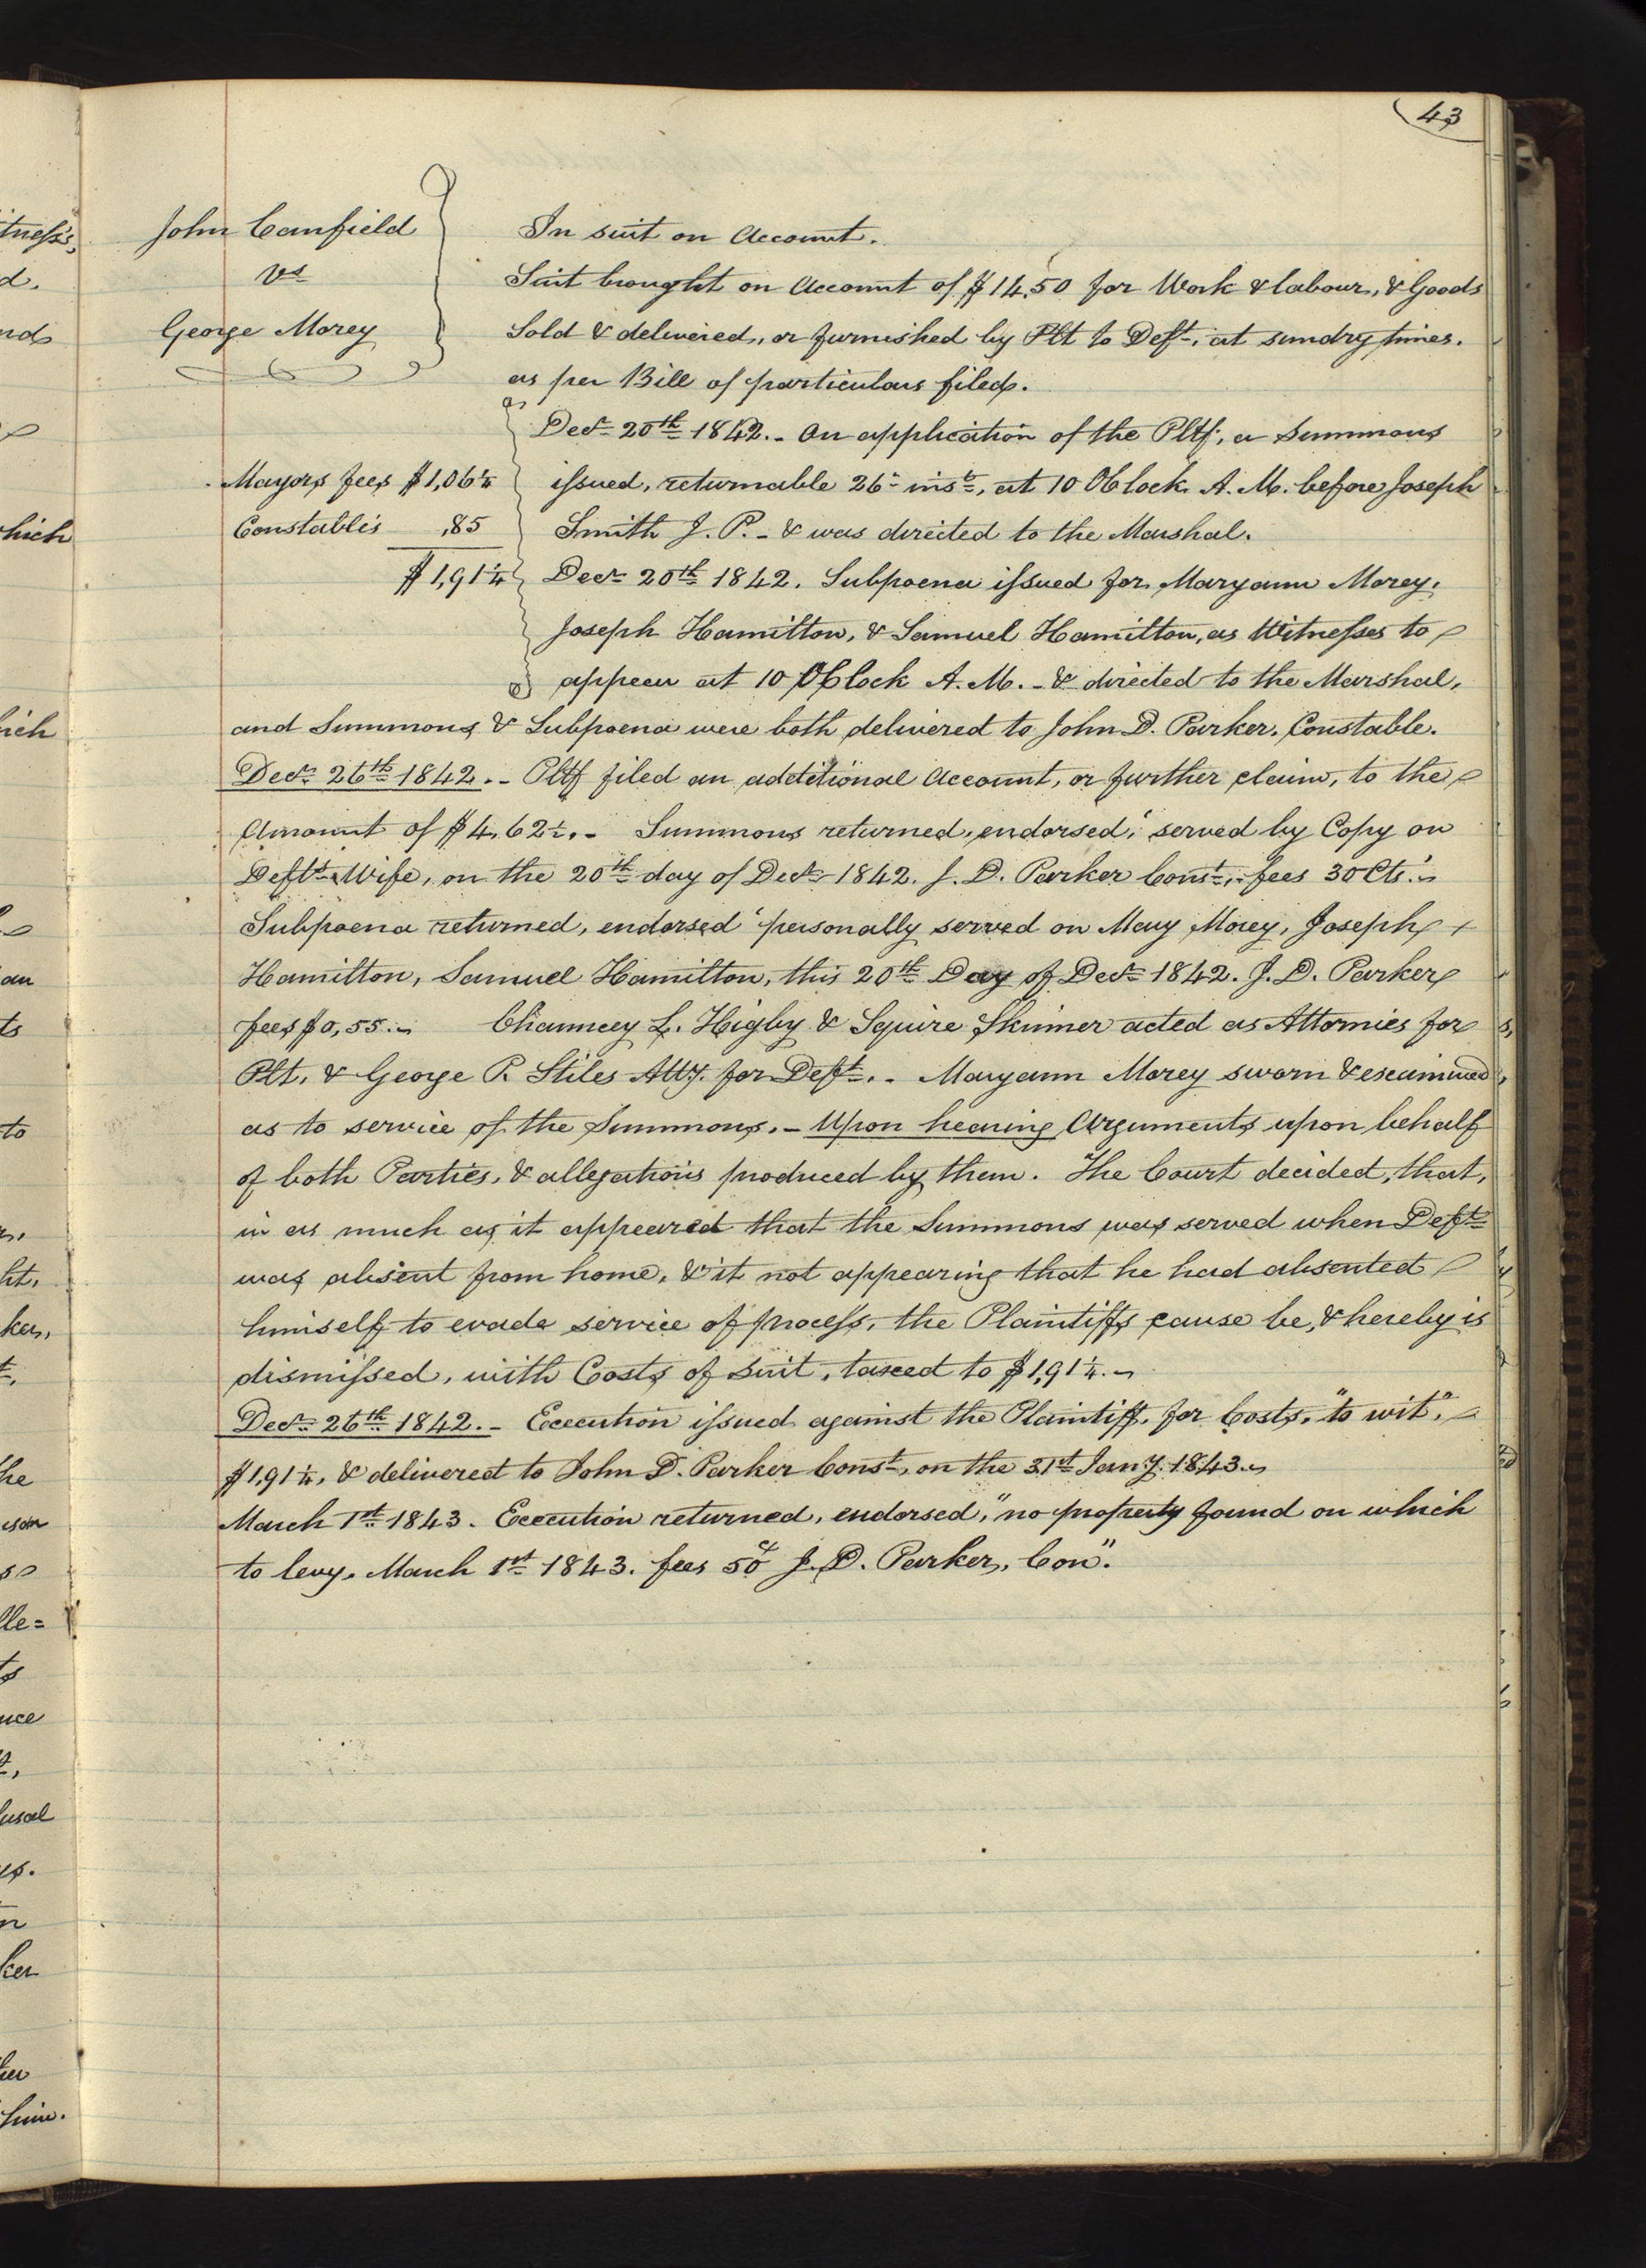 43
John Canfield
vs
George Morey
In suit on Account.
Suit brought on Account of $14,50 for Work & labour, & Goods
Sold & delivered, or furnished by Plt to Deft, at sundry times.
as per Bill of particulars filed.
Mayors fees $1,06¼
Constables ,85
$1,91¼
Decr 20th 1842. - On application of the Pltf, a Summons
issued, returnable 26th inst, at 10 O'Clock A. M. before Joseph
Smith J. P. - & was directed to the Marshal.
Decr 20th 1842. Subpoena issued for Maryann Morey,
Joseph Hamilton, & Samuel Hamilton, as Witnesses to
appear at 10 O'Clock A. M. - & directed to the Marshal,
and Summons & Subpoena were both delivered to John D. Parker, Constable.
Decr 26th 1842. - Pltf filed an additional Account, or further claim, to the
Amount of $4,62½. - Summons returned, endorsed, "served by Copy on
Defts Wife, on the 20th day of Decr 1842. J. D. Parker Const, fees 30 Cts."
Subpoena returned, endorsed "personally served on Mary Morey, Joseph
Hamilton, Samuel Hamilton, this 20th Day of Decr 1842. J. D. Parker
fees $0,55. Chauncey L. Higby & Squire Skinner acted as Attornies for
Plt, & George P. Stiles Atty. for Deft. - Maryann Morey sworn & examined
as to service of the Summons. - Upon hearing Arguments upon behalf
of both Parties, & allegations produced by them. The Court decided, that,
in as much as it appeared that the Summons was served when Deft
was absent from home, & it not appearing that he had absented
himself to evade service of process, the Plaintiffs cause be, & hereby is
dismissed, with Costs of suit, taxed to $1,91¼.
Decr 26th 1842. - Execution issued against the Plaintiff, for Costs, "to wit",
$1,91¼, & delivered to John D. Parker Const, on the 31st Jany. 1843.
March 1st 1843. Execution returned, endorsed, "no property found on which
to levy. March 1st 1843. fees 50c J. D. Parker, Con".